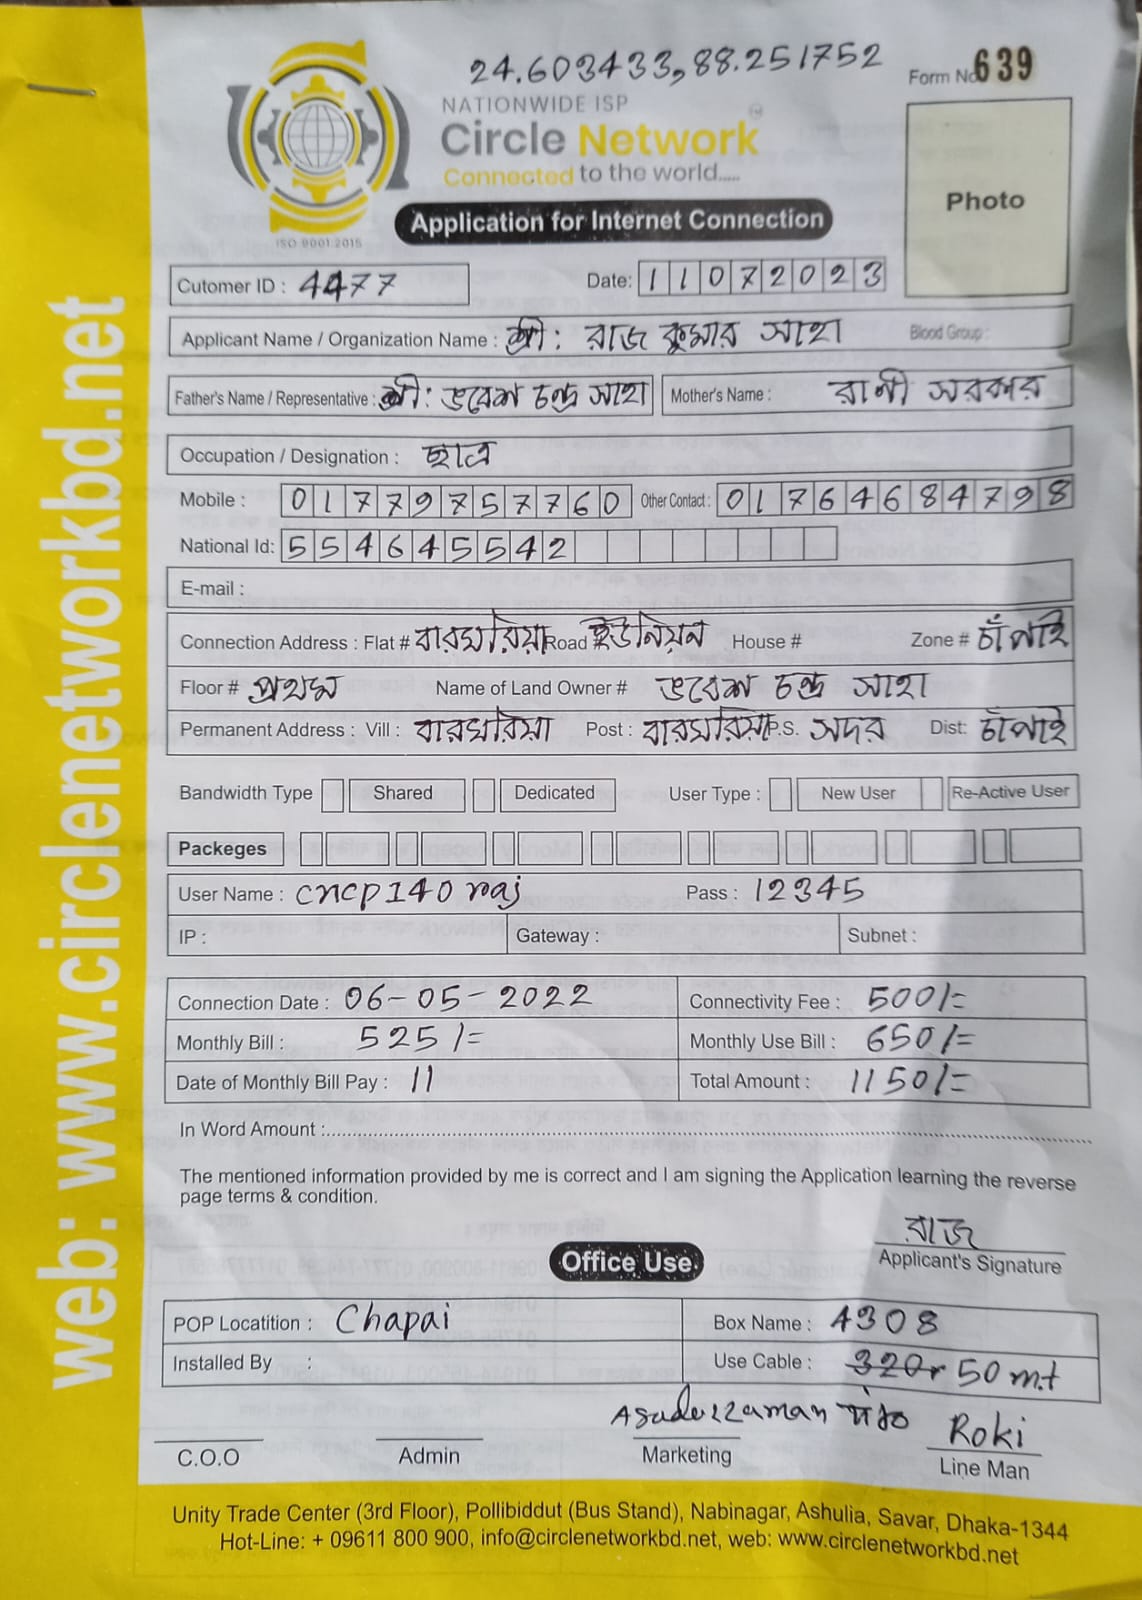 24.603433,88.251752
Form No. 639
NATIONWIDE ISP
Circle Network
Connected to the world.....
ISO 9001:2015
Application for Internet Connection
Photo
Cutomer ID : 4477 Date: 11072023
Applicant Name / Organization Name : শ্রী: রাজ কুমার সাহা Blood Group :
Father's Name / Representative : শ্রী: ভবেশ চন্দ্র সাহা Mother's Name : রানী সরকার
Occupation / Designation : ছাত্র
Mobile : 01779757760 Other Contact : 01764684798
National Id: 554645542
E-mail :
Connection Address : Flat # বারঘরিয়া Road ইউনিয়ন House # Zone # চাঁপাই
Floor # প্রথম Name of Land Owner # ভবেশ চন্দ্র সাহা
Permanent Address : Vill : বারঘরিয়া Post : বারঘরিয়া P.S. সদর Dist: চাঁপাই
Bandwidth Type Shared Dedicated User Type : New User Re-Active User
Packeges
User Name : cncp140 raj Pass : 12345
IP : Gateway : Subnet :
Connection Date : 06-05-2022 Connectivity Fee : 500/=
Monthly Bill : 525/= Monthly Use Bill : 650/=
Date of Monthly Bill Pay : 11 Total Amount : 1150/=
In Word Amount :
The mentioned information provided by me is correct and I am signing the Application learning the reverse
page terms & condition.
রাজ
Applicant's Signature
Office Use
POP Locatition : Chapai Box Name : 4308
Installed By : Use Cable : 320r 50 m.t
Asaduzzaman Roki
C.O.O Admin Marketing Line Man
Unity Trade Center (3rd Floor), Pollibiddut (Bus Stand), Nabinagar, Ashulia, Savar, Dhaka-1344
Hot-Line: + 09611 800 900, info@circlenetworkbd.net, web: www.circlenetworkbd.net
web: www.circlenetworkbd.net